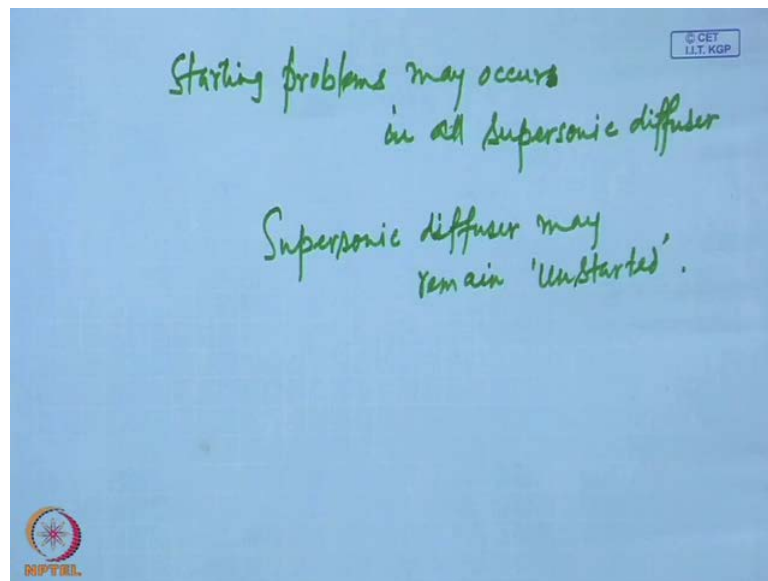 © CET
I.I.T. KGP
Starting problems may occurs
in all supersonic diffuser
Supersonic diffuser may
remain 'Unstarted'.
NPTEL